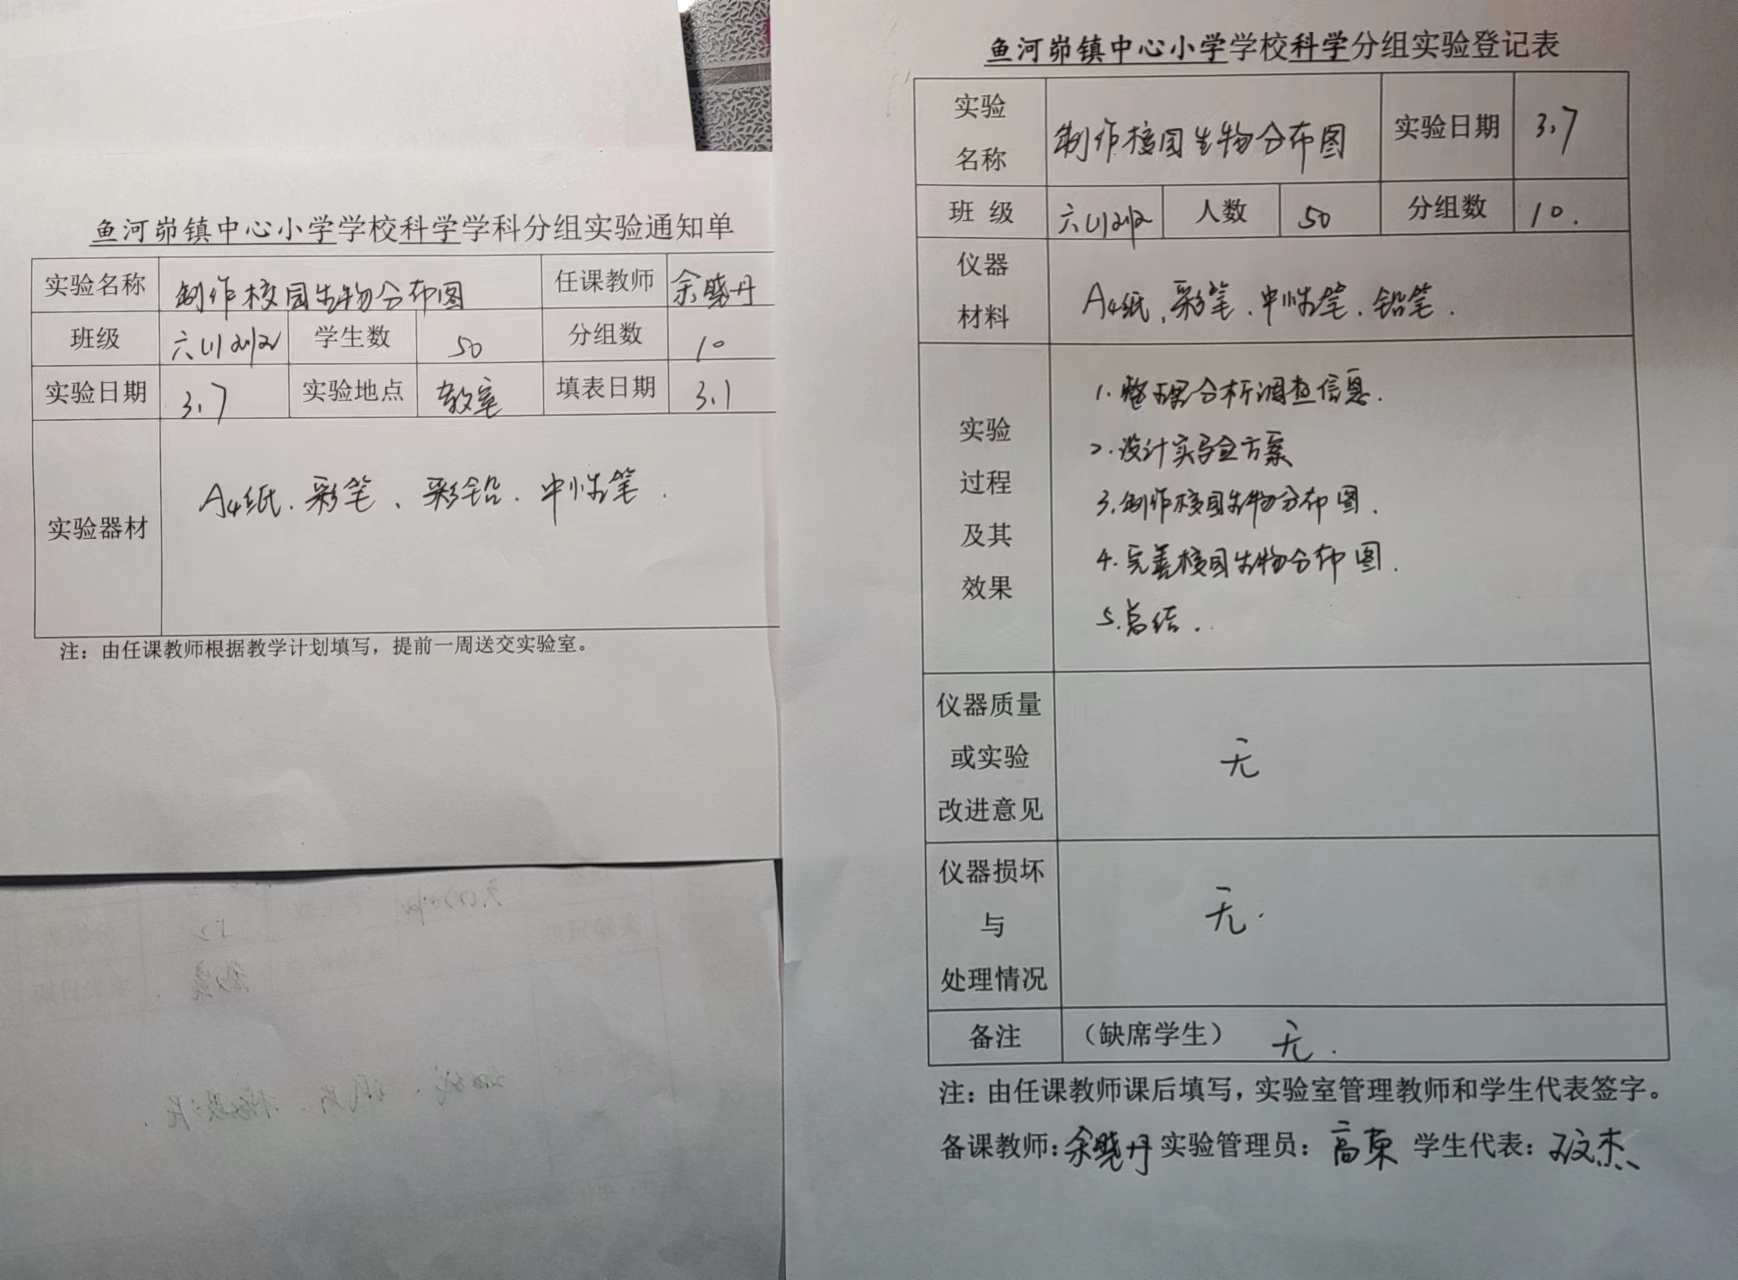 鱼河峁镇中心小学学校科学学科分组实验通知单
实验名称 制作校园生物分布图 任课教师 余晓丹
班级 六(1)班 学生数 50 分组数 10
实验日期 3.7 实验地点 教室 填表日期 3.1
实验器材 A4纸、彩笔、彩铅、中性笔.
注：由任课教师根据教学计划填写，提前一周送交实验室。
鱼河峁镇中心小学学校科学分组实验登记表
实验名称 制作校园生物分布图 实验日期 3.7
班级 六(1)班 人数 50 分组数 10.
仪器材料 A4纸、彩笔、中性笔、铅笔.
实验过程及其效果
1.整理分析调查信息.
2.设计实验方案
3.制作校园生物分布图.
4.完善校园生物分布图.
5.总结.
仪器质量或实验改进意见 无
仪器损坏与处理情况 无.
备注 （缺席学生） 无.
注：由任课教师课后填写，实验室管理教师和学生代表签字。
备课教师：余晓丹 实验管理员：高荣 学生代表：